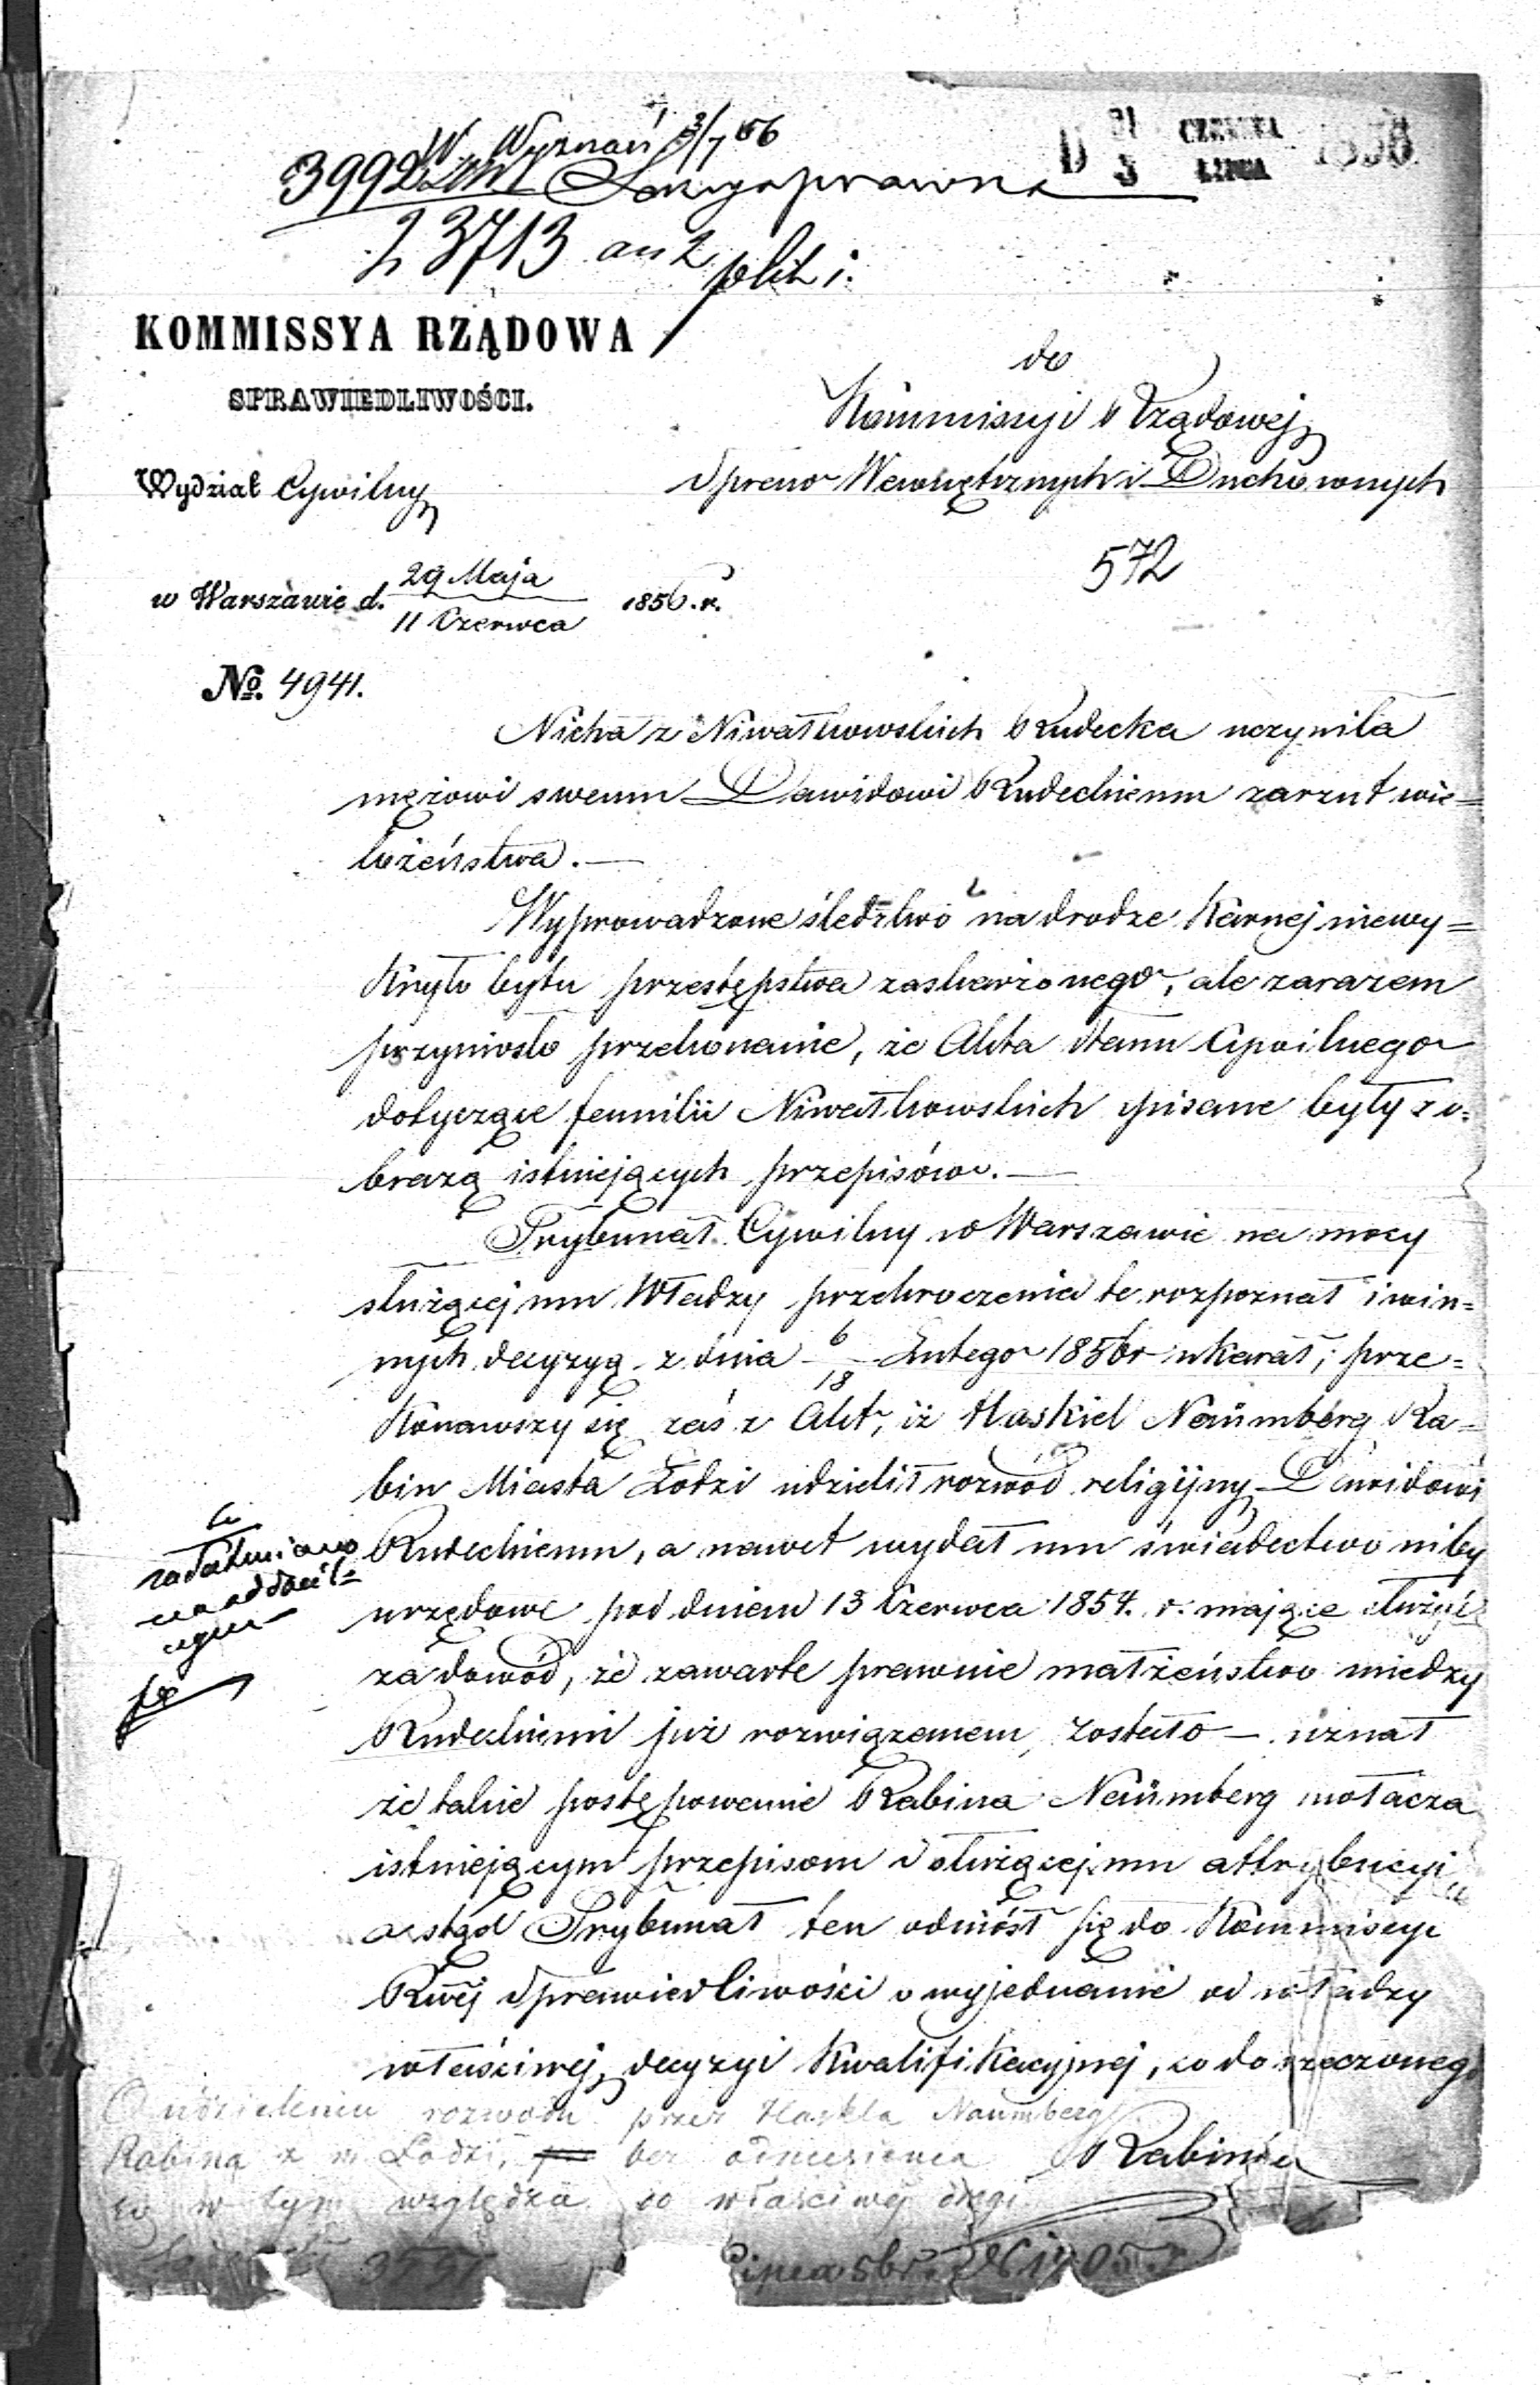 W Wyznań 3/7 56
3992
23713
D 21 CZERWCA 1856
3 LIPCA
KOMMISSYA RZĄDOWA
SPRAWIEDLIWOŚCI.
Wydział Cywilny
w Warszawie d. 29 Maja / 11 Czerwca 1856. r.
No. 4941.
do
Kommissyi Rządowej
Spraw Wewnętrznych i Duchownych
572
Nicha z Niwałkowskich Rudecka uczyniła
mężowi swemu Dawidowi Rudeckiemu zarzut wie=
lożeństwa.—
Wyprowadzone śledztwo na drodze Karnej niewy=
kryło bytu przestępstwa zaskarżonego, ale zarazem
przyniosło przekonanie, że Akta Stanu Cywilnego
dotyczące familii Niwałkowskich spisane były z o=
brazą istniejących przepisów.—
Trybunał Cywilny w Warszawie na mocy
służącej mu Władzy przekroczenia te rozpoznał i win=
nych decyzyą z dnia 6/18 Lutego 1856 r ukarał; prze=
konawszy się zaś z Akt, iż Haskiel Naümberg Ra=
bin Miasta Łodzi udzielił rozwód religijny Dawidowi
Rudeckiemu, a nawet wydał mu świadectwo niby
urzędowe pod dniem 13 Czerwca 1854. r. mające służyć
za dowód, że zawarte prawnie małżeństwo miedzy
Rudeckiemi już rozwiązanem zostało — uznał
że takie postępowanie Rabina Naümberg uwłacza
istniejącym przepisom i służącej mu attrybucyi,
a stąd Trybunał ten odniósł się do Kommissyi
Rwej Sprawiedliwości o wyjednanie od władzy
właściwej, decyzyi Kwalifikacyjnej, co do rzeczonego
Rabina
załatwiono
na oddziel=
O udzieleniu rozwodu przez Haskla Naumberg
Rabina z m. Łodzi, bez odniesienia
się w tym względzie do właściwej